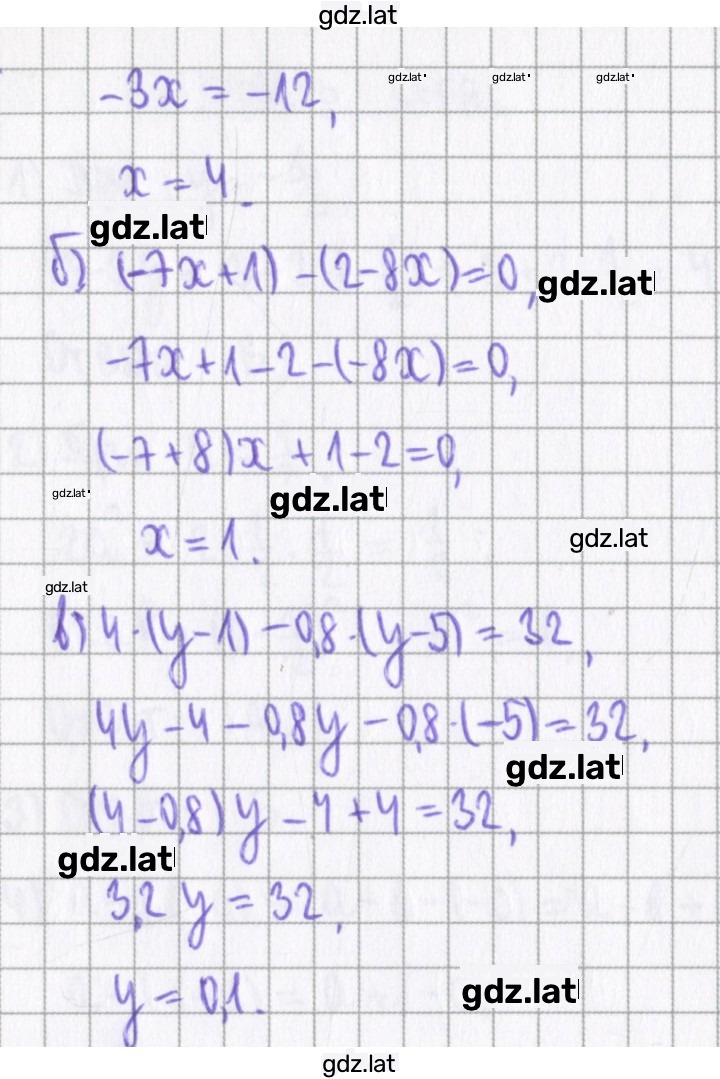 gdz.lat
-3x = -12,
gdz.lat gdz.lat gdz.lat
x = 4.
gdz.lat
б) (-7x+1) -(2-8x)=0,
gdz.lat
-7x+1-2-(-8x)=0,
(-7+8)x+1-2=0,
gdz.lat gdz.lat
x=1.
gdz.lat
gdz.lat
в) 4·(y-1)-0,8·(y-5)=32,
4y-4-0,8y-0,8·(-5)=32,
gdz.lat
(4-0,8)y-4+4=32,
gdz.lat
3,2y=32,
y=0,1.
gdz.lat
gdz.lat